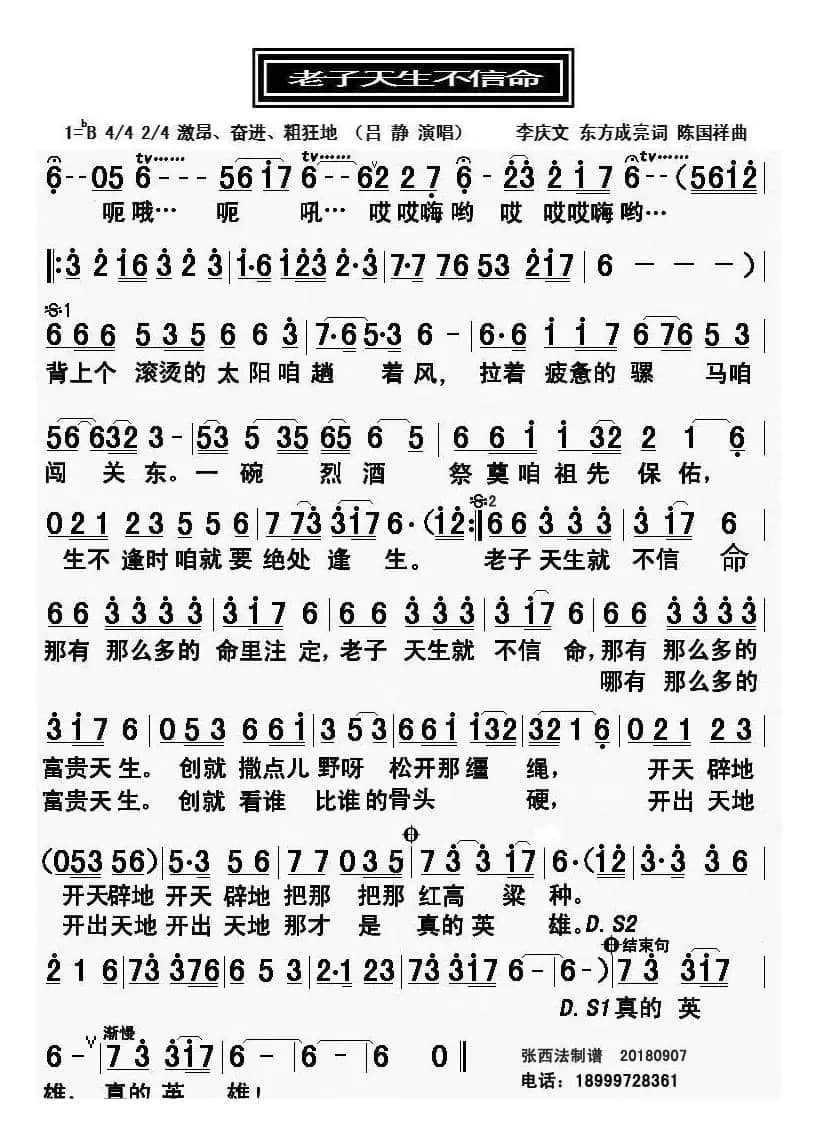 老子天生不信命
1=ᵇB 4/4 2/4 激昂、奋进、粗狂地 （吕 静 演唱） 李庆文 东方成亮词 陈国祥曲
tv…… tv…… tv……
6－05 6－ 5617 6－ 62 2 7 6－23 217 6－（5612｜
呃哦… 呃 吼… 哎哎嗨哟 哎 哎哎嗨哟…
‖:3 2 163 2 3｜1·6 123 2·3｜7·7 76 53 217｜6 － － －）｜
𝄋1
6 6 6 5 3 5 6 6 3｜7·65·3 6－｜6·6 1 1 7 6 765 3｜
背上个 滚烫的 太阳咱 趟 着风， 拉着 疲惫的 骡 马咱
56 632 3－｜53 5 35 65 6 5｜6 6 1 1 32 2 1 6｜
闯 关 东。一 碗 烈 酒 祭 奠 咱 祖 先 保 佑，
𝄋2
0 2 1 2 3 5 5 6｜7 73 317 6·（12:‖6 6 3 3 3｜3 17 6｜
生不 逢时 咱就 要 绝处 逢 生。 老子 天生就 不信 命
6 6 3 3 3 3｜3 1 7 6｜6 6 3 3 3｜3 17 6｜6 6 3 3 3 3｜
那有 那么多的 命里注 定，老子 天生就 不信 命，那有 那么多的
哪有 那么多的
3 1 7 6｜0 5 3 6 6 1｜3 5 3｜6 6 1 132｜32 1 6｜0 2 1 2 3｜
富贵天 生。 创就 撒点儿 野呀 松开那 缰 绳， 开天 辟地
富贵天 生。 创就 看谁 比谁的 骨头 硬， 开出 天地
（053 56）｜5·3 5 6｜7 7 0 3 5｜7 3 3 17｜6·（12｜3·3 3 6｜
开天辟地 开天 辟地 把那 把那 红高 粱 种。
开出天地 开出 天地 那才 是 真的 英 雄。D.S2
结束句
2 1 6｜73 376｜6－｜2·1 23｜73 317｜6－｜6－）｜7 3 317｜
D.S1 真的 英
渐慢
6－｜7 3 317｜6－｜6－｜6 0‖
雄，真的 英 雄！
张西法制谱 20180907
电话：18999728361